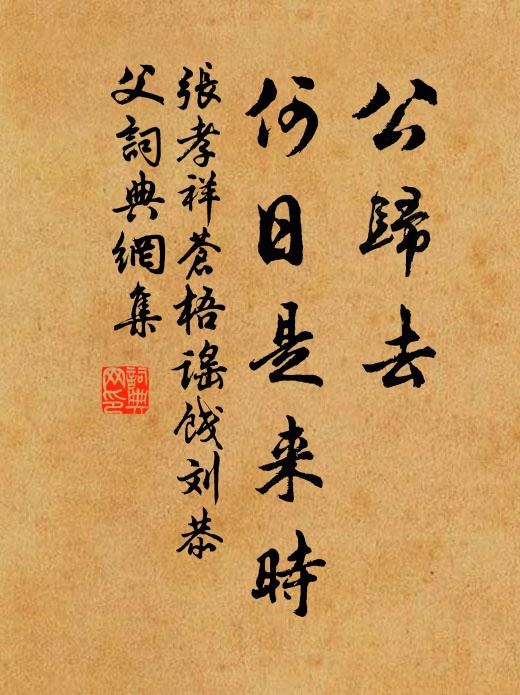 公歸去
何日是来時
張孝祥蒼梧謠餞刘恭
父詞典網集
詞典
网印